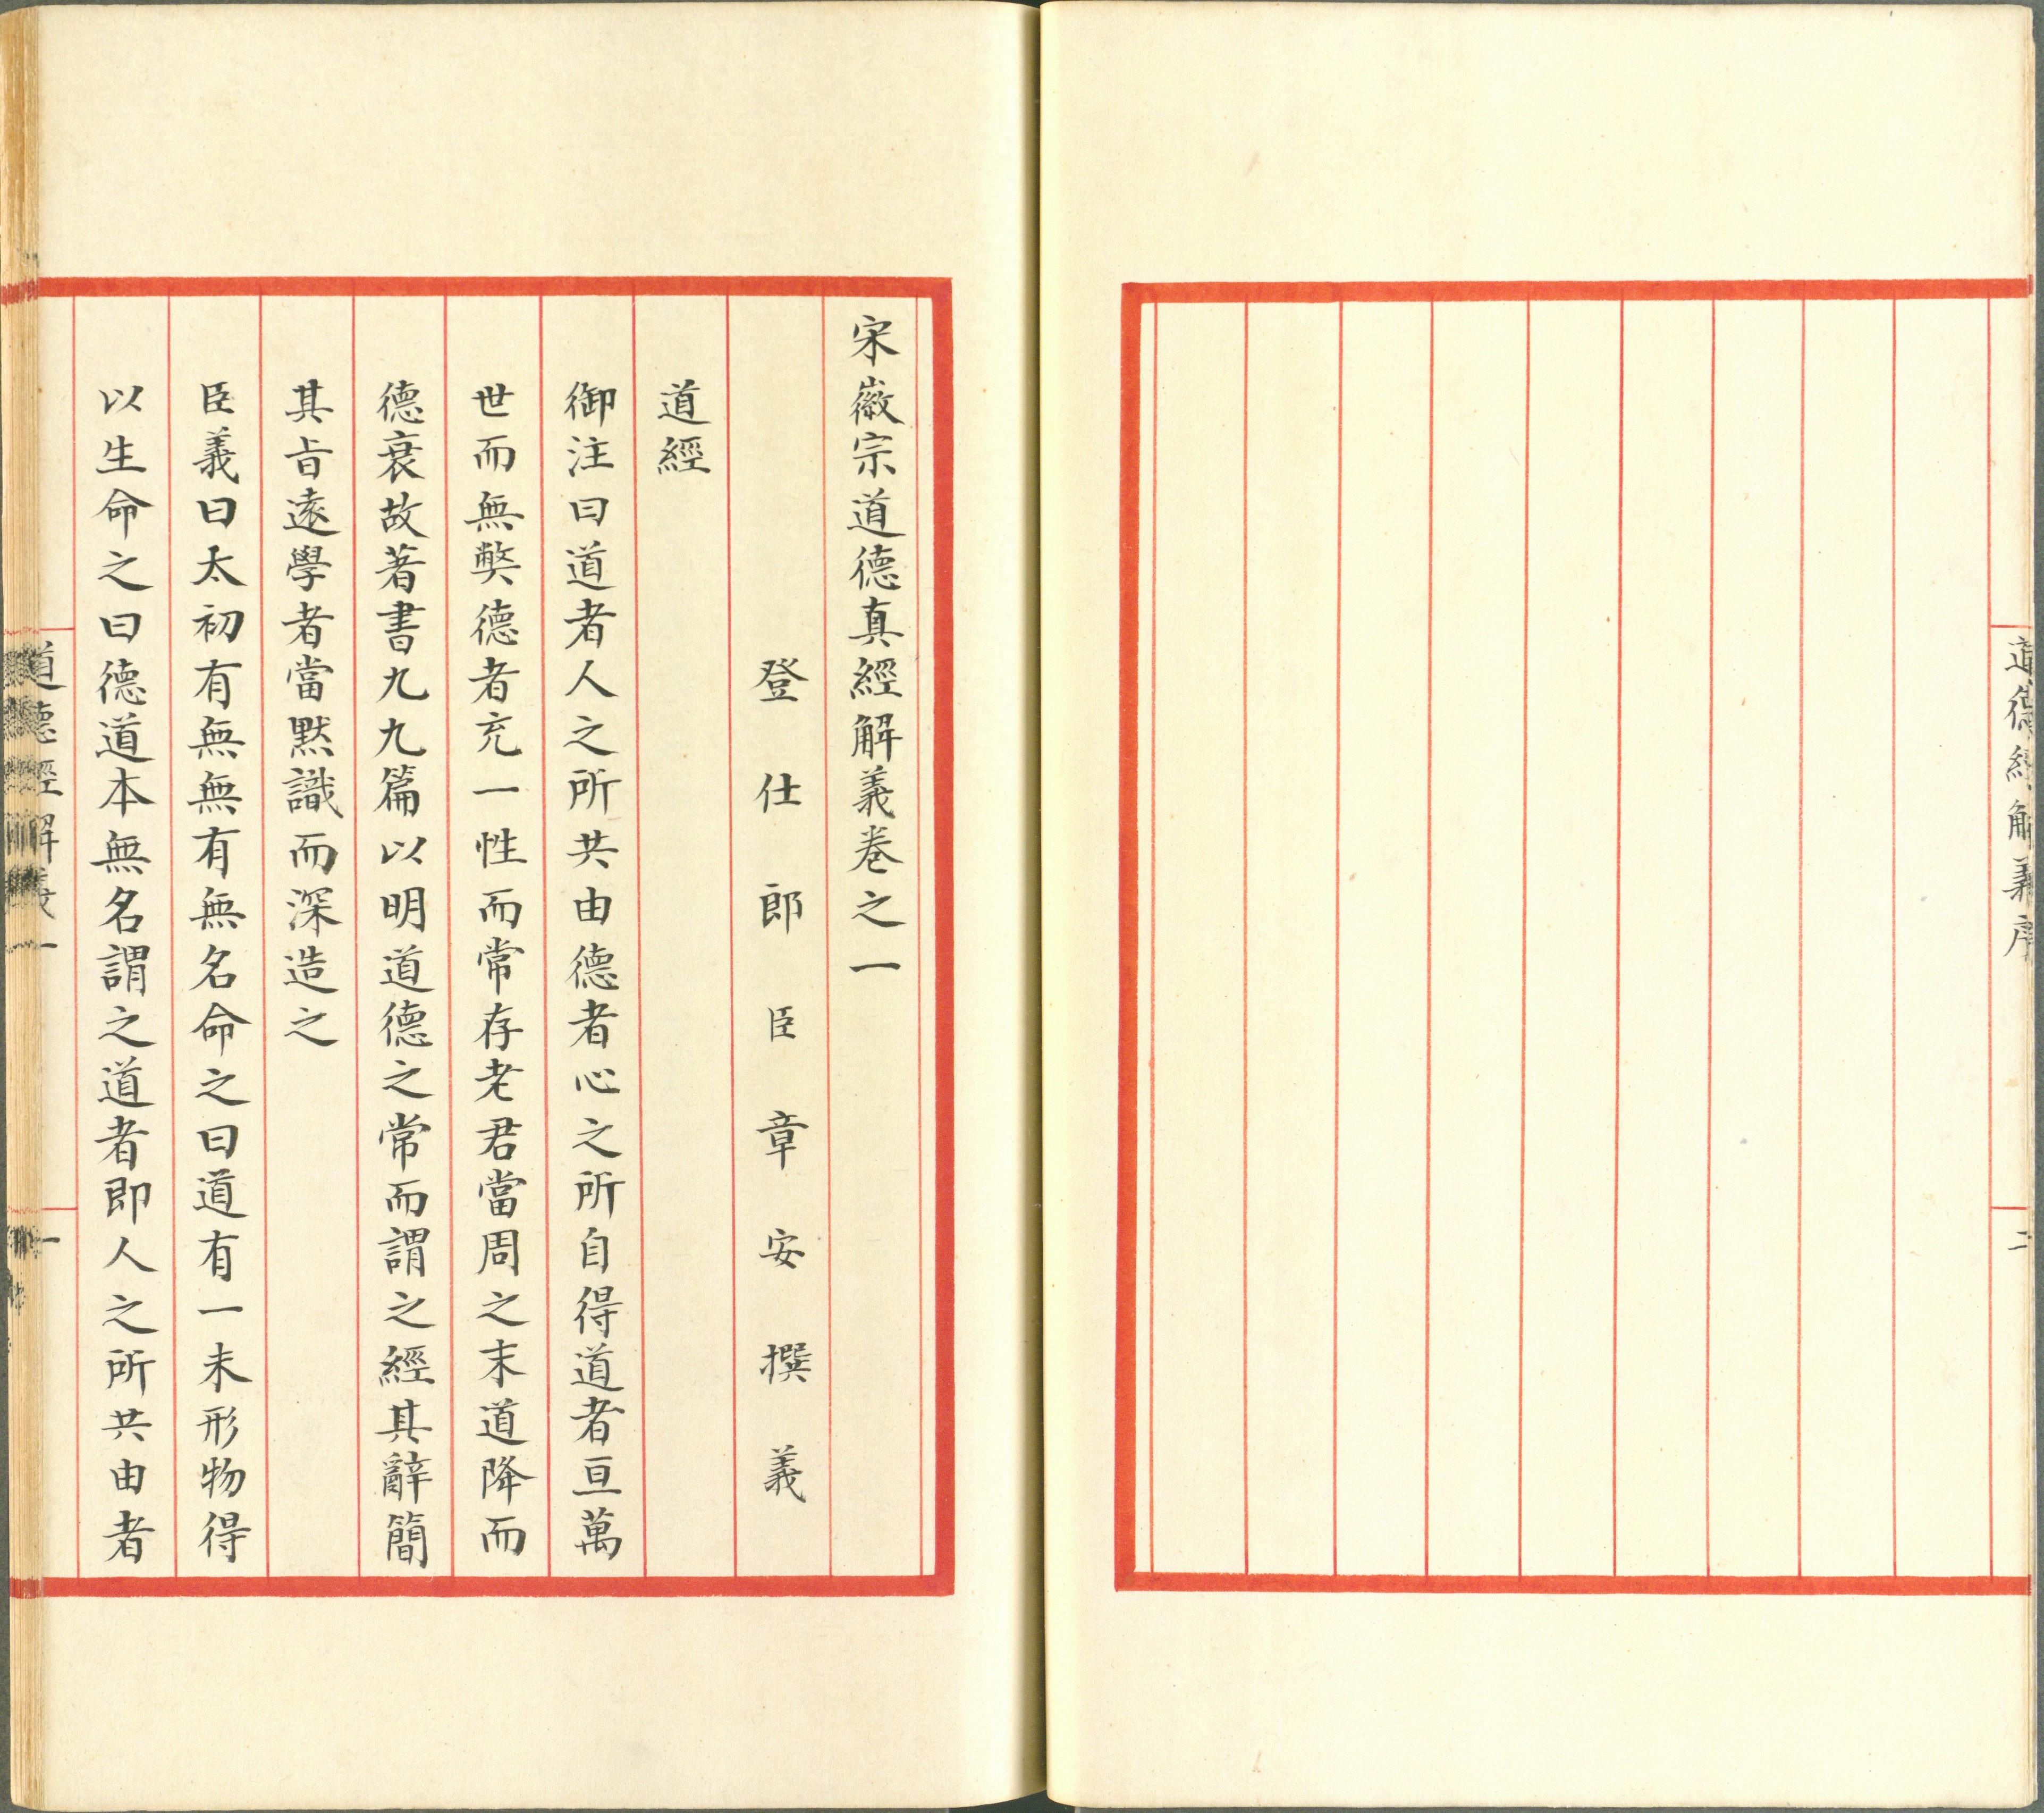 道德經解義序
二
宋徽宗道德真經解義卷之一
登仕郎臣章安撰義
道經
御注曰道者人之所共由德者心之所自得道者亘萬
世而無弊德者充一性而常存老君當周之末道降而
德衰故著書九九篇以明道德之常而謂之經其辭簡
其旨遠學者當默識而深造之
臣義曰太初有無無有無名命之曰道有一未形物得
以生命之曰德道本無名謂之道者即人之所共由者
道德經解義一
一